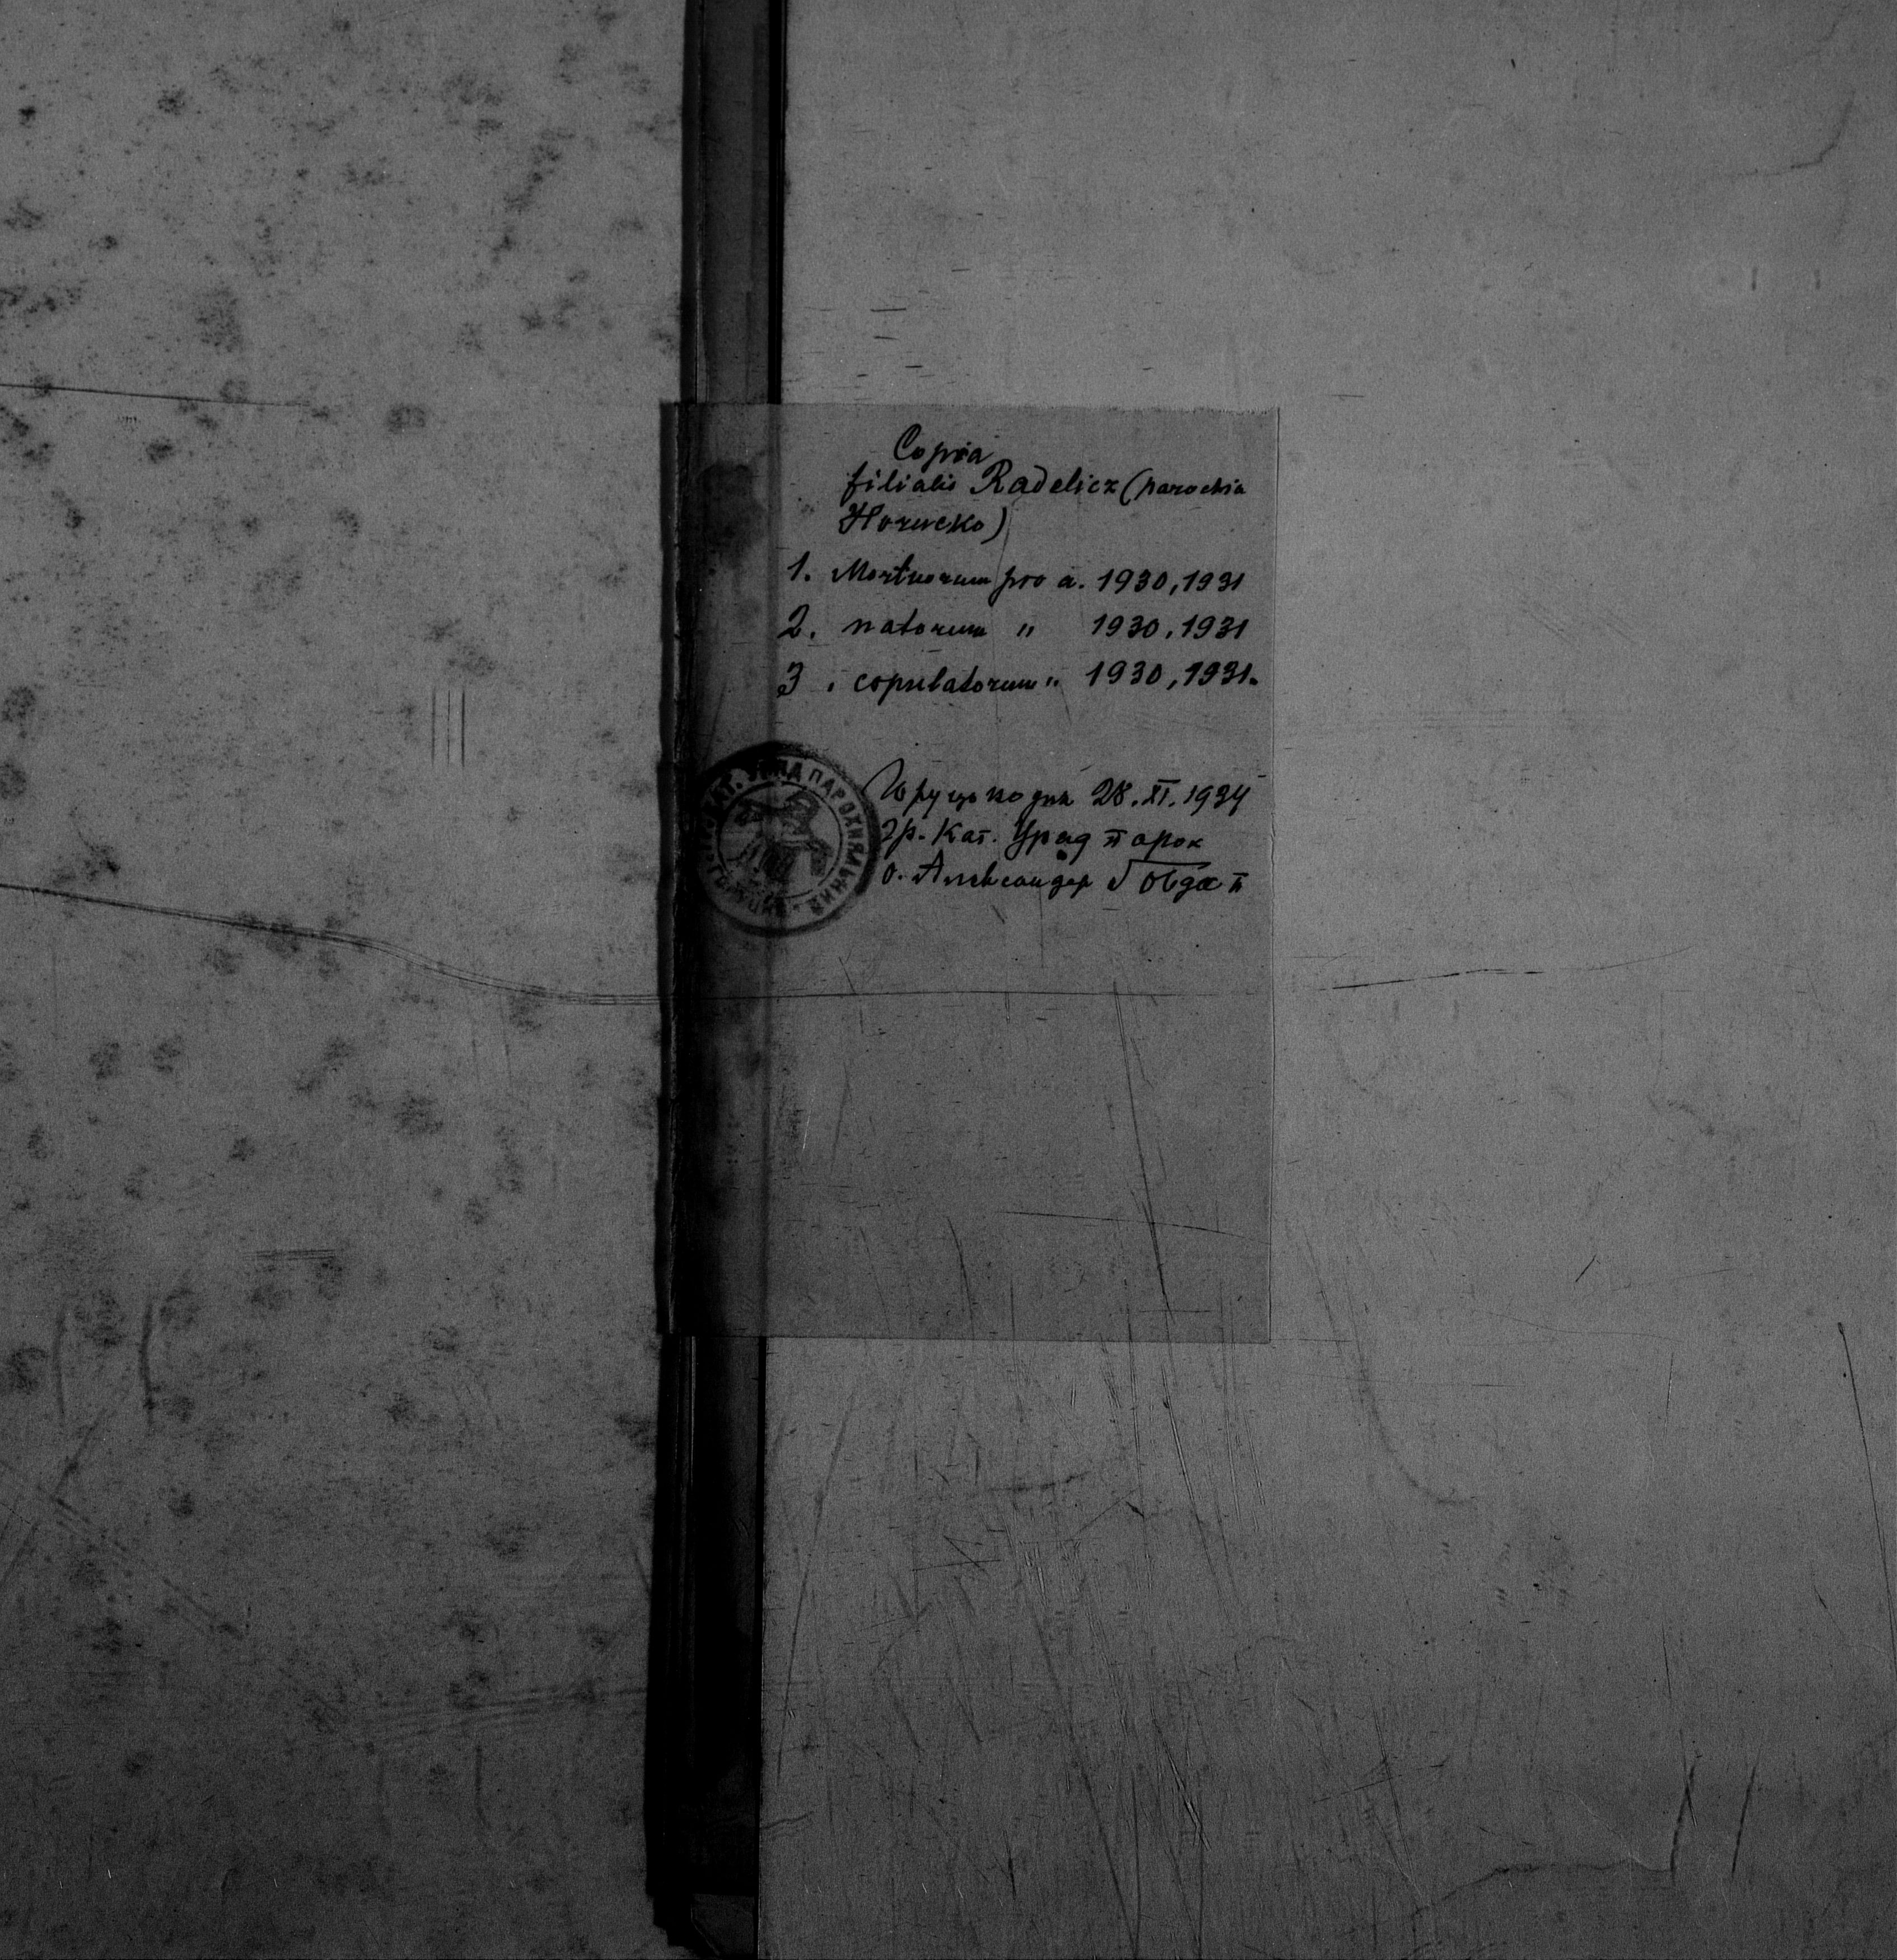 Copia
filialis Radelicz (parochia
Horucko)
1. Mortuorum pro a. 1930, 1931
2. natorum " 1930, 1931
3. copulatorum " 1930, 1931.
КАТ. УРЯД ПАРОХИЯЛЬНИЙ
дня 28. XI. 1934
Гр. Кат. Уряд парох
о. Александер